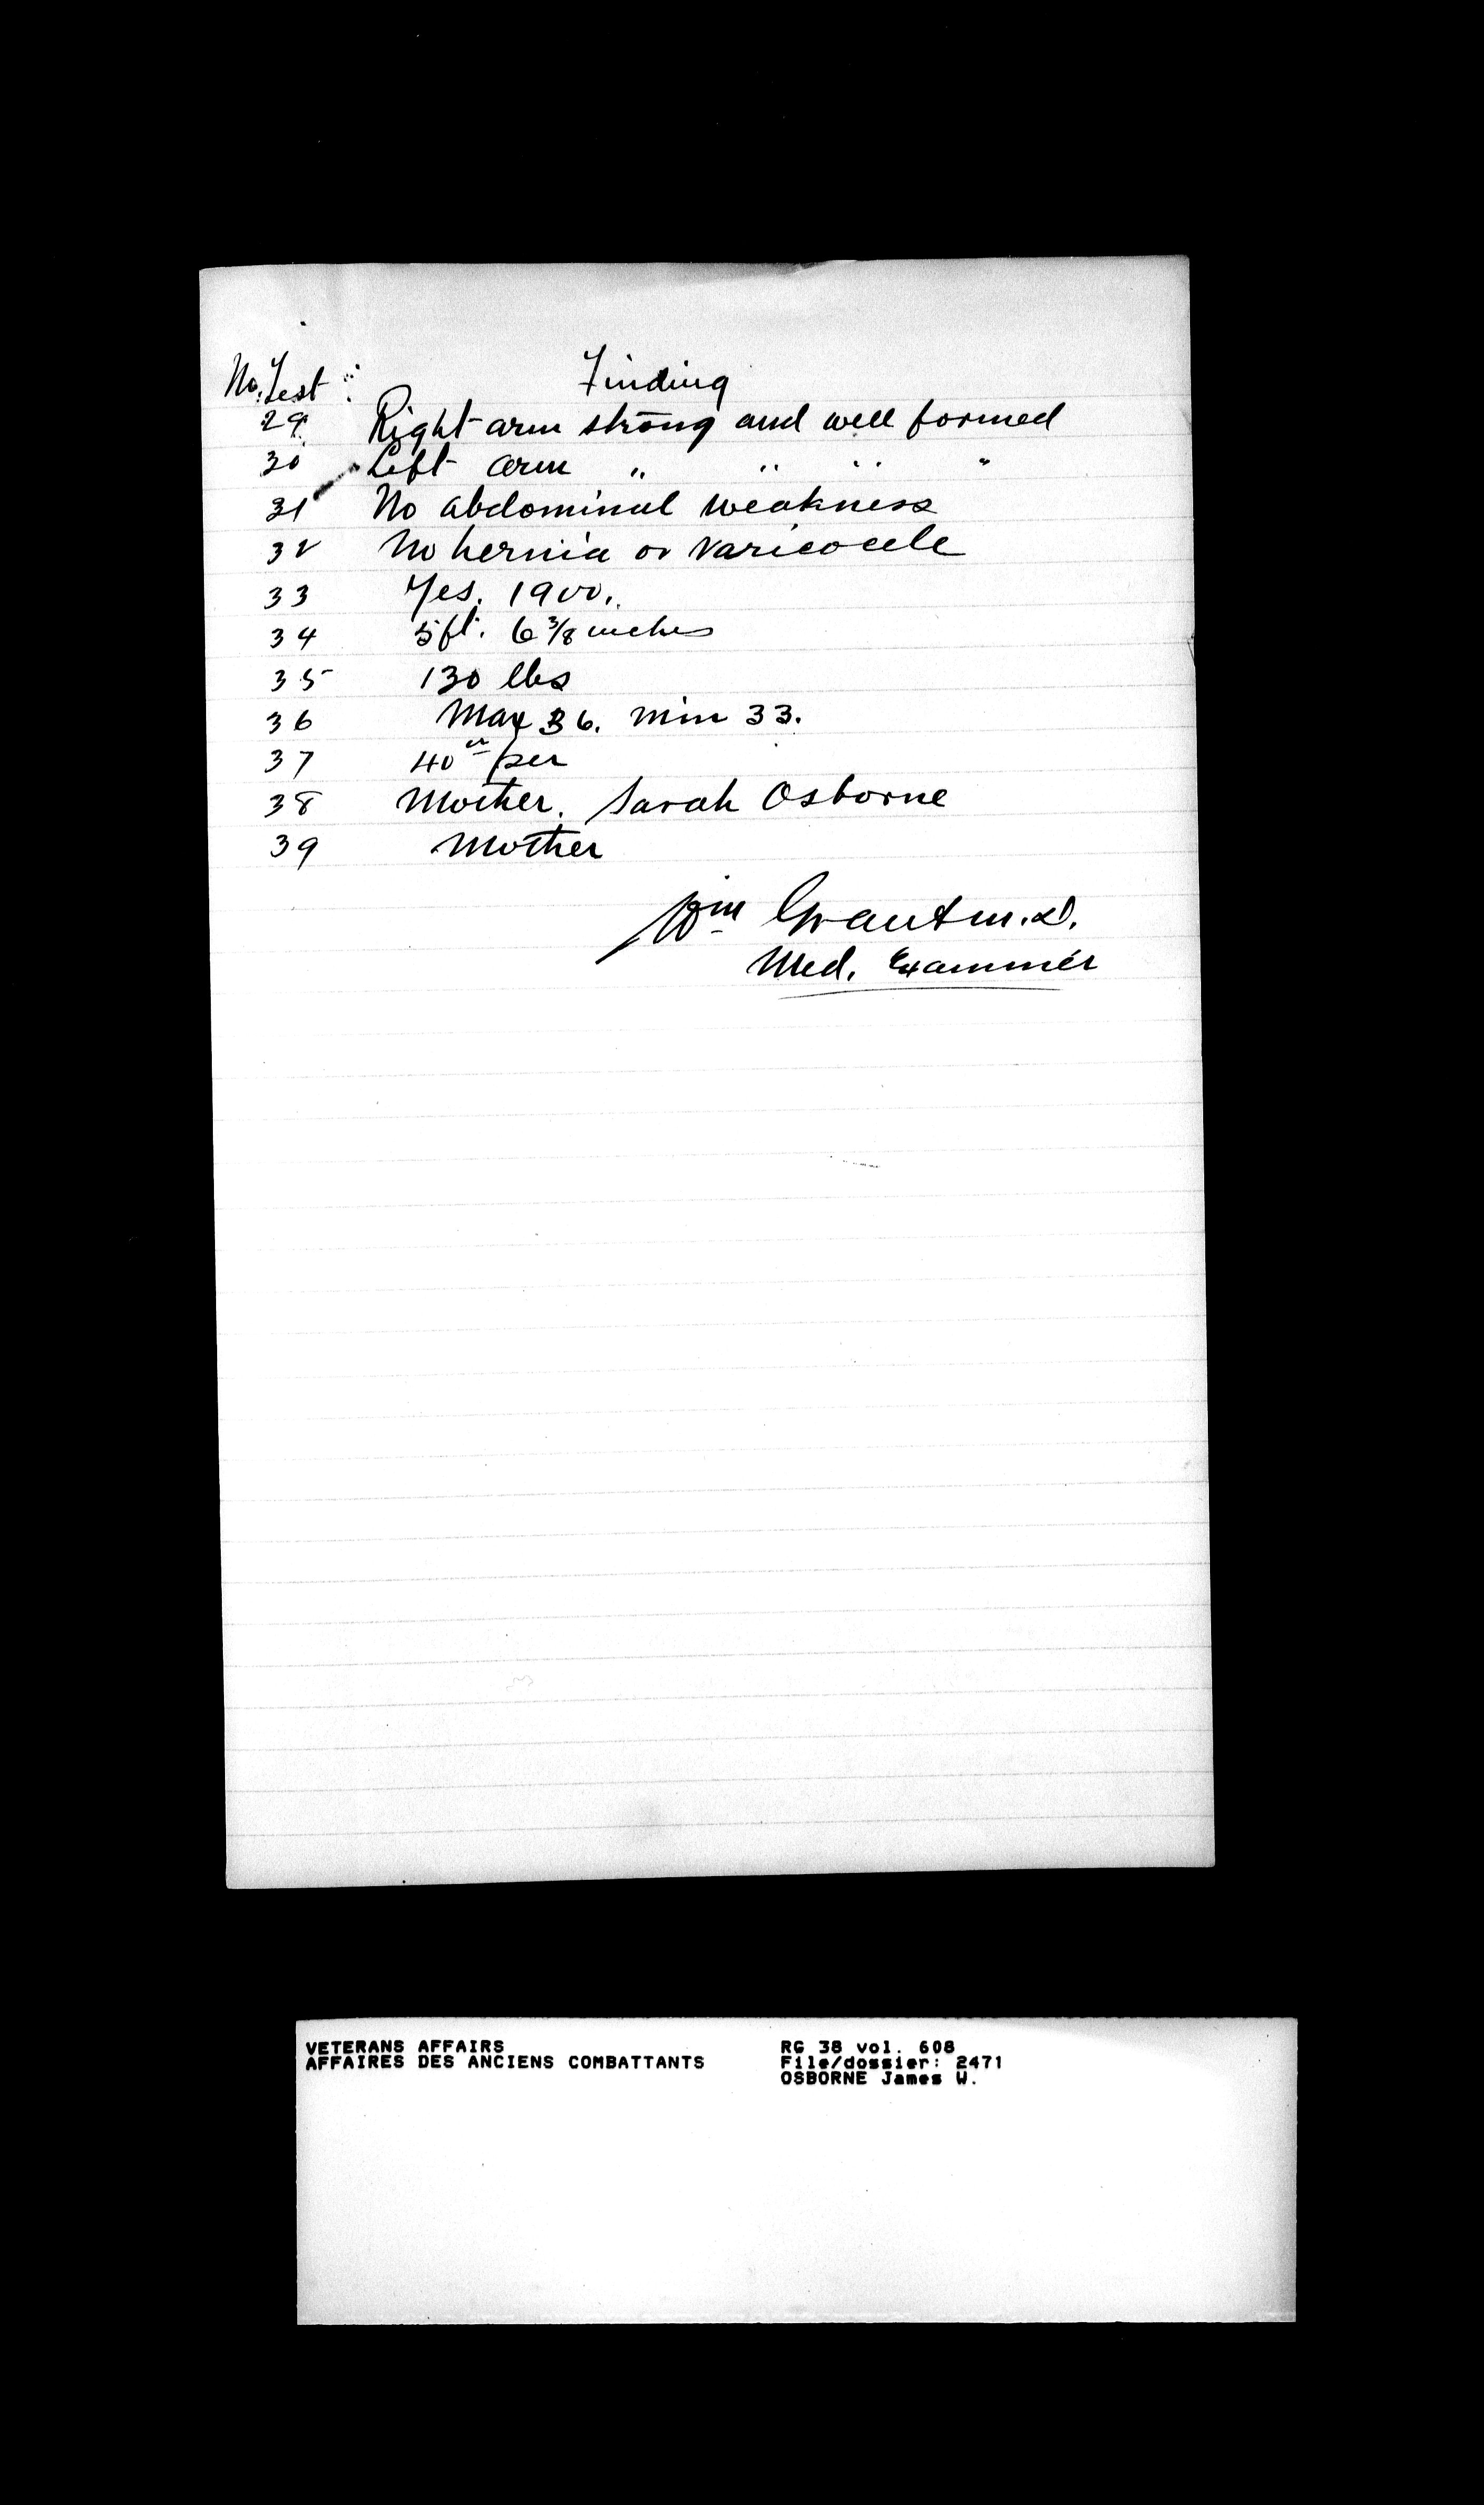 No. Test Finding
29. Right arm strong and well formed
30 Left arm " " " "
31 No abdominal weakness
32 No hernia or varicocele
33 Yes. 1900.
34 5 ft. 6 3/8 inches
35 130 lbs
36 Max 36. Min 33.
37 per
38 Mother. Sarah Osborne
39 Mother
Wm Grant M.D.
Med. Examiner
VETERANS AFFAIRS
AFFAIRES DES ANCIENS COMBATTANTS
RG 38 vol. 608
File/dossier: 2471
OSBORNE James W.